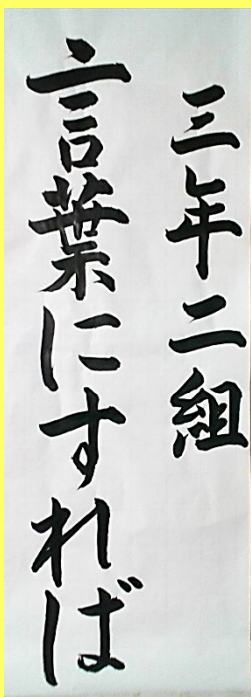 三年二組
言葉にすれば